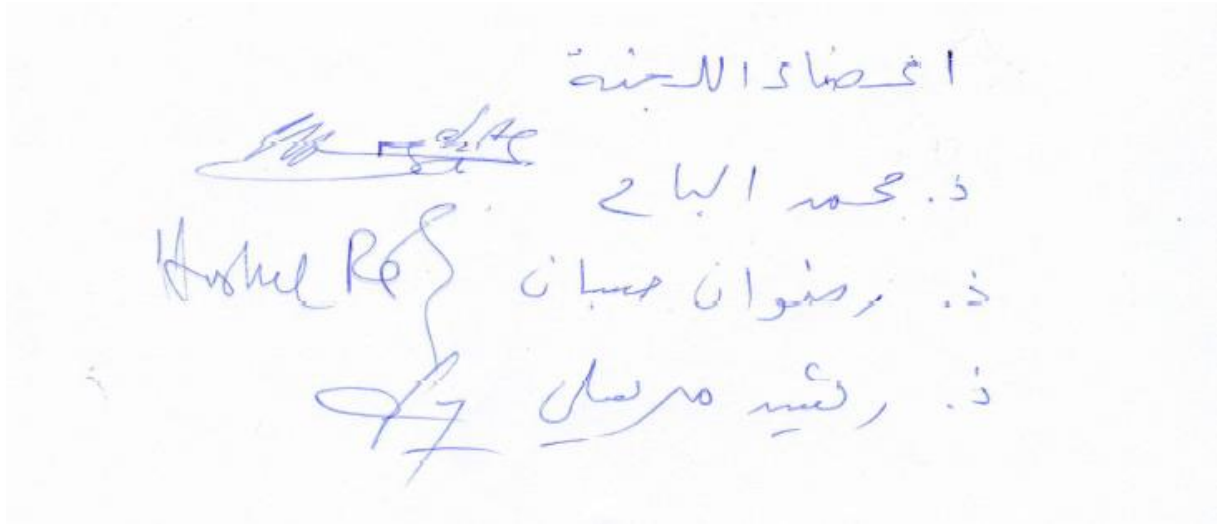 اعضاء اللجنة
ذ. محمد الباح
ذ. رضوان حسبان
ذ. رشيد مرسلي